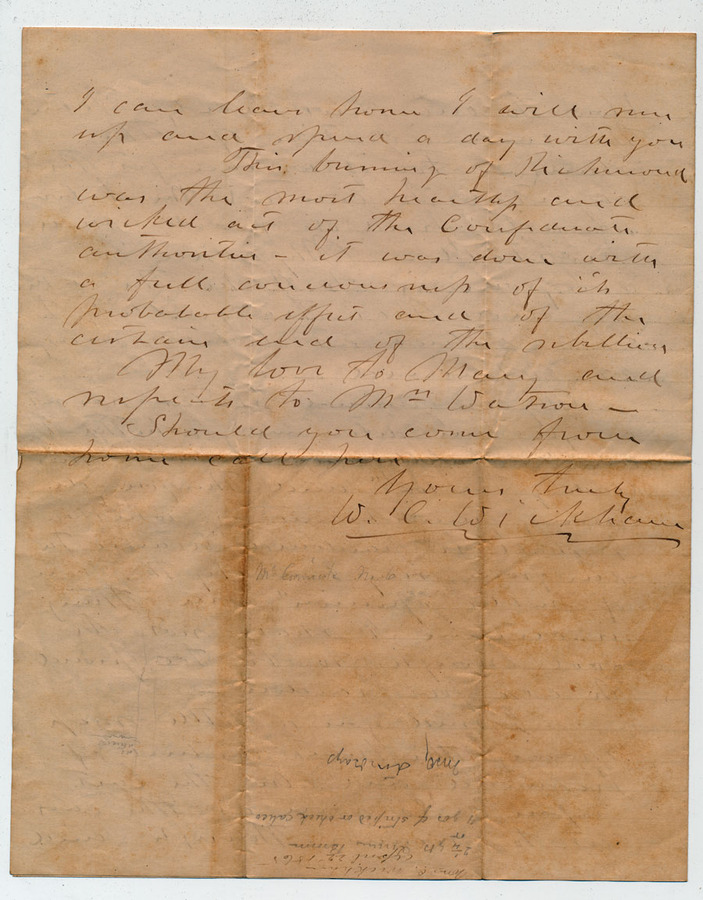 I can leave home I will run
up and spend a day with you
This burning of Richmond
was the most heartless and
wicked act of the Confederate
authorities — it was done with
a full consciousness of its
probable effect and of the
certain end of the rebellion
My love to Mary and
respects to Mrs Watson —
Should you come from
home call here
Yours truly
W. C. Wickham
yds of striped or check calico
Brown
April 27 1865
Wickham